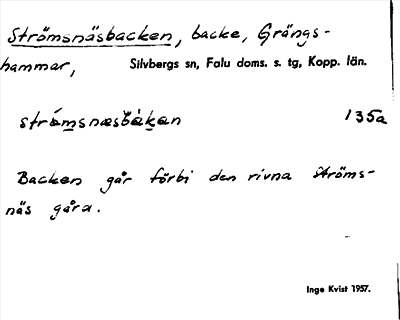 Strömsnäsbacken, backe, Grängs-
hammar, Silvbergs sn, Falu doms. s. tg, Kopp. län.
135a
Backen går förbi den rivna Ströms-
näs gård.
Inge Kvist 1957.